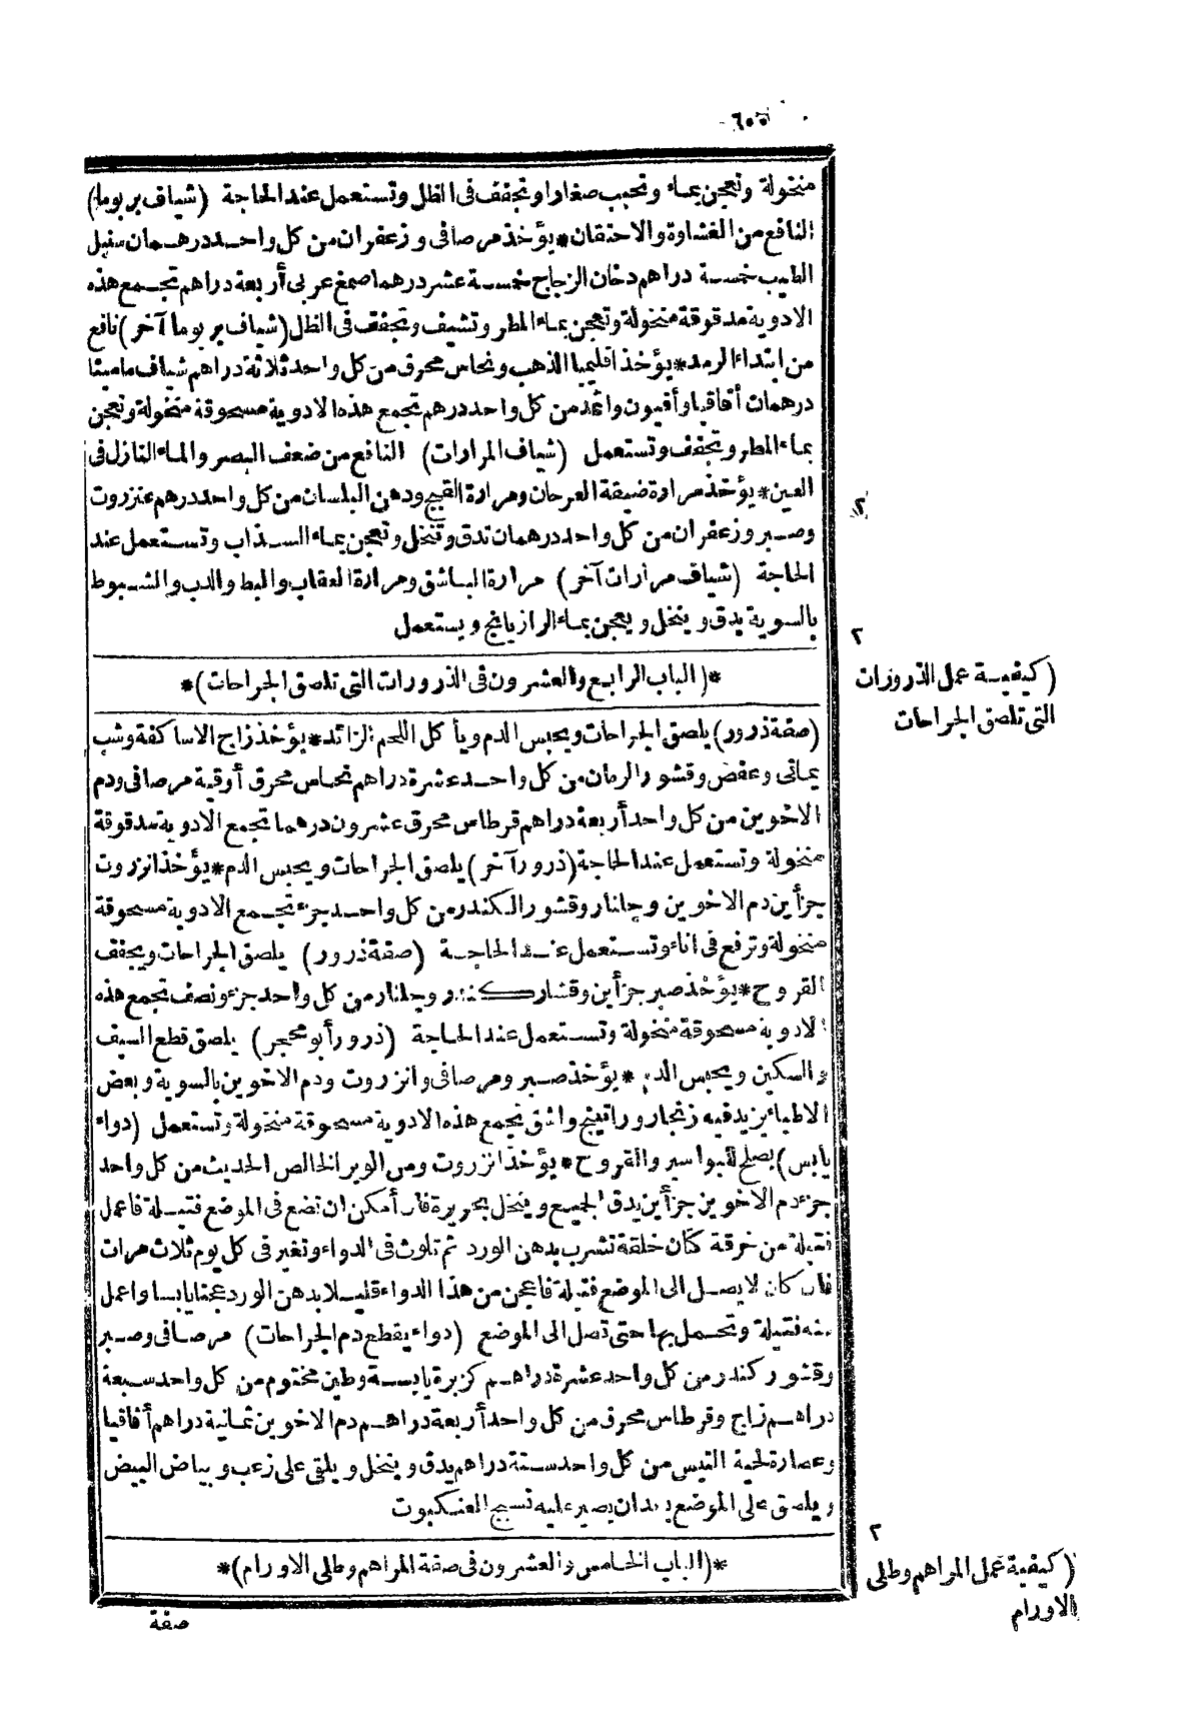 منخولة وتعجن بماء وتحبب صغارا وتجفف فى الظل وتستعمل عند الحاجة (شياف بربوما)
النافع من الغشاوة والاحتقان*يؤخذ مر صافى وزعفران من كل واحد درهمان سنبل
الطيب خمسة دراهم دخان الزجاج خمسة عشر درهما صمغ عربى أربعة دراهم تجمع هذه
الادوية مدقوقة منخولة وتعجن بماء المطر وتشيف وتجفف فى الظل (شياف بربوما آخر) نافع
من ابتداء الرمد*يؤخذ اقليميا الذهب ونحاس محرق من كل واحد ثلاثة دراهم شياف ماميثا
درهمان أقاقيا وأفيون واثمد من كل واحد درهم تجمع هذه الادوية مسحوقة منخولة وتعجن
بماء المطر وتجفف وتستعمل (شياف المرارات) النافع من ضعف البصر والماء النازل فى
العين*يؤخذ مرارة ضبعة العرجان ومرارة القبج ودهن البلسان من كل واحد درهم عنزروت
وصبر وزعفران من كل واحد درهمان تدق وتنخل وتعجن بماء السذاب وتستعمل عند
الحاجة (شياف مرارات آخر) مرارة الباشق ومرارة العقاب والبط والدب والشبوط
بالسوية يدق وينخل ويعجن بماء الرازيانج ويستعمل
*(الباب الرابع والعشرون فى الذرورات التى تلصق الجراحات)*
(كيفية عمل الذرورات
التى تلصق الجراحات
(صفة ذرور) يلصق الجراحات ويحبس الدم ويأكل اللحم الزائد*يؤخذ زاج الاساكفة وشب
يمانى وعفص وقشور الرمان من كل واحد عشرة دراهم نحاس محرق أوقية مر صافى ودم
الاخوين من كل واحد أربعة دراهم قرطاس محرق عشرون درهما تجمع الادوية مدقوقة
منخولة وتستعمل عند الحاجة (ذرور آخر) يلصق الجراحات ويحبس الدم*يؤخذ انزروت
جزأين دم الاخوين وجلنار وقشور الكندر من كل واحد جزء تجمع الادوية مسحوقة
منخولة وترفع فى اناء وتستعمل عند الحاجة (صفة ذرور) يلصق الجراحات ويجفف
القروح*يؤخذ صبر جزأين وقشار كندر وجلنار من كل واحد جزء ونصف تجمع هذه
الادوية مسحوقة منخولة وتستعمل عند الحاجة (ذرور أبو محجر) يلصق قطع السيف
والسكين ويحبس الدم*يؤخذ صبر ومر صافى وانزروت ودم الاخوين بالسوية وبعض
الاطباء يزيد فيه زنجار وراتينج واشق تجمع هذه الادوية مسحوقة منخولة وتستعمل (دواء
يابس) يصلح للبواسير والقروح*يؤخذ انزروت ومن الوبر الخالص الحديث من كل واحد
جزء دم الاخوين جزأين يدق الجميع وينخل بحريرة فان أمكن ان تضع فى الموضع فتيلة فاعمل
فتيلة من خرقة كتان خلقة تشرب بدهن الورد ثم تلوث فى الدواء وتغير فى كل يوم ثلاث مرات
فان كان لا يصل الى الموضع فتيلة فاعجن من هذا الدواء قليلا بدهن الورد عجنا يابسا واعمل
منه فتيلة وتحمل بها حتى تصل الى الموضع (دواء يقطع دم الجراحات) مر صافى وصبر
وقشور كندر من كل واحد عشرة دراهم كزبرة يابسة وطين مختوم من كل واحد سبعة
دراهم زاج وقرطاس محرق من كل واحد أربعة دراهم دم الاخوين ثمانية دراهم أقاقيا
وعصارة لحية التيس من كل واحد ستة دراهم يدق وينخل ويلقى على زعب وبياض البيض
ويلصق على الموضع بعد ان يصير عليه نسيج العنكبوت
*(الباب الخامس والعشرون فى صفة المراهم وطلى الاورام)*
(كيفية عمل المراهم وطلى
الاورام
صفة